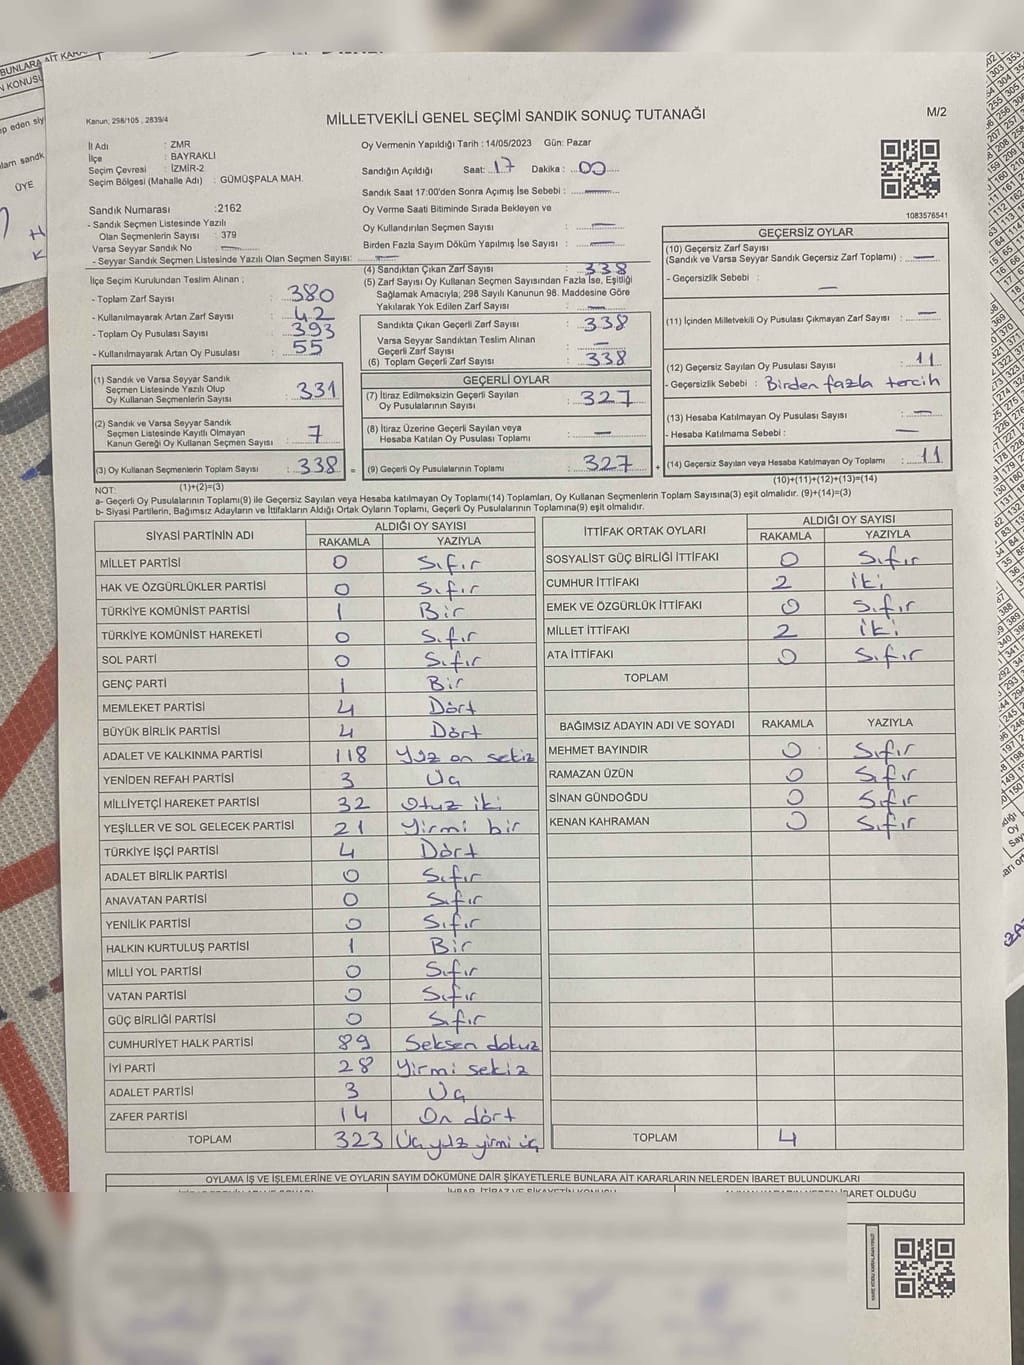 BUNLARA AİT KARA
N KONUSU
ep eden siy
lam sandk
ÜYE
Kanun; 298/105 , 2839/4
MİLLETVEKİLİ GENEL SEÇİMİ SANDIK SONUÇ TUTANAĞI
M/2
İl Adı : ZMR
İlçe : BAYRAKLI
Seçim Çevresi : İZMİR-2
Seçim Bölgesi (Mahalle Adı) : GÜMÜŞPALA MAH.
Oy Vermenin Yapıldığı Tarih : 14/05/2023 Gün: Pazar
Sandığın Açıldığı Saat: 17 Dakika : 00
Sandık Saat 17:00'den Sonra Açımış İse Sebebi : —
Oy Verme Saati Bitiminde Sırada Bekleyen ve
Oy Kullandırılan Seçmen Sayısı : —
Birden Fazla Sayım Döküm Yapılmış İse Sayısı : —
1083576541
Sandık Numarası :2162
- Sandık Seçmen Listesinde Yazılı
Olan Seçmenlerin Sayısı : 379
Varsa Seyyar Sandık No : —
- Seyyar Sandık Seçmen Listesinde Yazılı Olan Seçmen Sayısı: —
İlçe Seçim Kurulundan Teslim Alınan ;
- Toplam Zarf Sayısı : 380
- Kullanılmayarak Artan Zarf Sayısı : 42
- Toplam Oy Pusulası Sayısı : 393
- Kullanılmayarak Artan Oy Pusulası : 55
(1) Sandık ve Varsa Seyyar Sandık
Seçmen Listesinde Yazılı Olup
Oy Kullanan Seçmenlerin Sayısı : 331
(2) Sandık ve Varsa Seyyar Sandık
Seçmen Listesinde Kayıtlı Olmayan
Kanun Gereği Oy Kullanan Seçmen Sayısı : 7
(3) Oy Kullanan Seçmenlerin Toplam Sayısı : 338 =
(1)+(2)=(3)
(4) Sandıktan Çıkan Zarf Sayısı : 338
(5) Zarf Sayısı Oy Kullanan Seçmen Sayısından Fazla İse, Eşitliği
Sağlamak Amacıyla; 298 Sayılı Kanunun 98. Maddesine Göre
Yakılarak Yok Edilen Zarf Sayısı : —
Sandıkta Çıkan Geçerli Zarf Sayısı : 338
Varsa Seyyar Sandıktan Teslim Alınan
Geçerli Zarf Sayısı : —
(6) Toplam Geçerli Zarf Sayısı : 338
GEÇERLİ OYLAR
(7) İtiraz Edilmeksizin Geçerli Sayılan
Oy Pusulalarının Sayısı : 327
(8) İtiraz Üzerine Geçerli Sayılan veya
Hesaba Katılan Oy Pusulası Toplamı : —
(9) Geçerli Oy Pusulalarının Toplamı : 327 +
GEÇERSİZ OYLAR
(10) Geçersiz Zarf Sayısı
(Sandık ve Varsa Seyyar Sandık Geçersiz Zarf Toplamı) : —
- Geçersizlik Sebebi : —
(11) İçinden Milletvekili Oy Pusulası Çıkmayan Zarf Sayısı : —
(12) Geçersiz Sayılan Oy Pusulası Sayısı : 11
- Geçersizlik Sebebi : Birden fazla tercih
(13) Hesaba Katılmayan Oy Pusulası Sayısı : —
- Hesaba Katılmama Sebebi : —
(14) Geçersiz Sayılan veya Hesaba Katılmayan Oy Toplamı : 11
(10)+(11)+(12)+(13)=(14)
NOT:
a- Geçerli Oy Pusulalarının Toplamı(9) ile Geçersiz Sayılan veya Hesaba katılmayan Oy Toplamı(14) Toplamları, Oy Kullanan Seçmenlerin Toplam Sayısına(3) eşit olmalıdır. (9)+(14)=(3)
b- Siyasi Partilerin, Bağımsız Adayların ve İttifakların Aldığı Ortak Oyların Toplamı, Geçerli Oy Pusulalarının Toplamına(9) eşit olmalıdır.
SİYASİ PARTİNİN ADI ALDIĞI OY SAYISI
RAKAMLA YAZIYLA
MİLLET PARTİSİ 0 Sıfır
HAK VE ÖZGÜRLÜKLER PARTİSİ 0 Sıfır
TÜRKİYE KOMÜNİST PARTİSİ 1 Bir
TÜRKİYE KOMÜNİST HAREKETİ 0 Sıfır
SOL PARTİ 0 Sıfır
GENÇ PARTİ 1 Bir
MEMLEKET PARTİSİ 4 Dört
BÜYÜK BİRLİK PARTİSİ 4 Dört
ADALET VE KALKINMA PARTİSİ 118 Yüz on sekiz
YENİDEN REFAH PARTİSİ 3 Üç
MİLLİYETÇİ HAREKET PARTİSİ 32 Otuz iki
YEŞİLLER VE SOL GELECEK PARTİSİ 21 Yirmi bir
TÜRKİYE İŞÇİ PARTİSİ 4 Dört
ADALET BİRLİK PARTİSİ 0 Sıfır
ANAVATAN PARTİSİ 0 Sıfır
YENİLİK PARTİSİ 0 Sıfır
HALKIN KURTULUŞ PARTİSİ 1 Bir
MİLLİ YOL PARTİSİ 0 Sıfır
VATAN PARTİSİ 0 Sıfır
GÜÇ BİRLİĞİ PARTİSİ 0 Sıfır
CUMHURİYET HALK PARTİSİ 89 Seksen dokuz
İYİ PARTİ 28 Yirmi sekiz
ADALET PARTİSİ 3 Üç
ZAFER PARTİSİ 14 On dört
TOPLAM 323 Üç yüz yirmi üç
İTTİFAK ORTAK OYLARI ALDIĞI OY SAYISI
RAKAMLA YAZIYLA
SOSYALİST GÜÇ BİRLİĞİ İTTİFAKI 0 Sıfır
CUMHUR İTTİFAKI 2 iki
EMEK VE ÖZGÜRLÜK İTTİFAKI 0 Sıfır
MİLLET İTTİFAKI 2 iki
ATA İTTİFAKI 0 Sıfır
TOPLAM
BAĞIMSIZ ADAYIN ADI VE SOYADI RAKAMLA YAZIYLA
MEHMET BAYINDIR 0 Sıfır
RAMAZAN ÜZÜN 0 Sıfır
SİNAN GÜNDOĞDU 0 Sıfır
KENAN KAHRAMAN 0 Sıfır
TOPLAM 4
OYLAMA İŞ VE İŞLEMLERİNE VE OYLARIN SAYIM DÖKÜMÜNE DAİR ŞİKAYETLERLE BUNLARA AİT KARARLARIN NELERDEN İBARET BULUNDUKLARI
İHBAR, İTİRAZ VE ŞİKAYETİN KONUSU
İBARET OLDUĞU